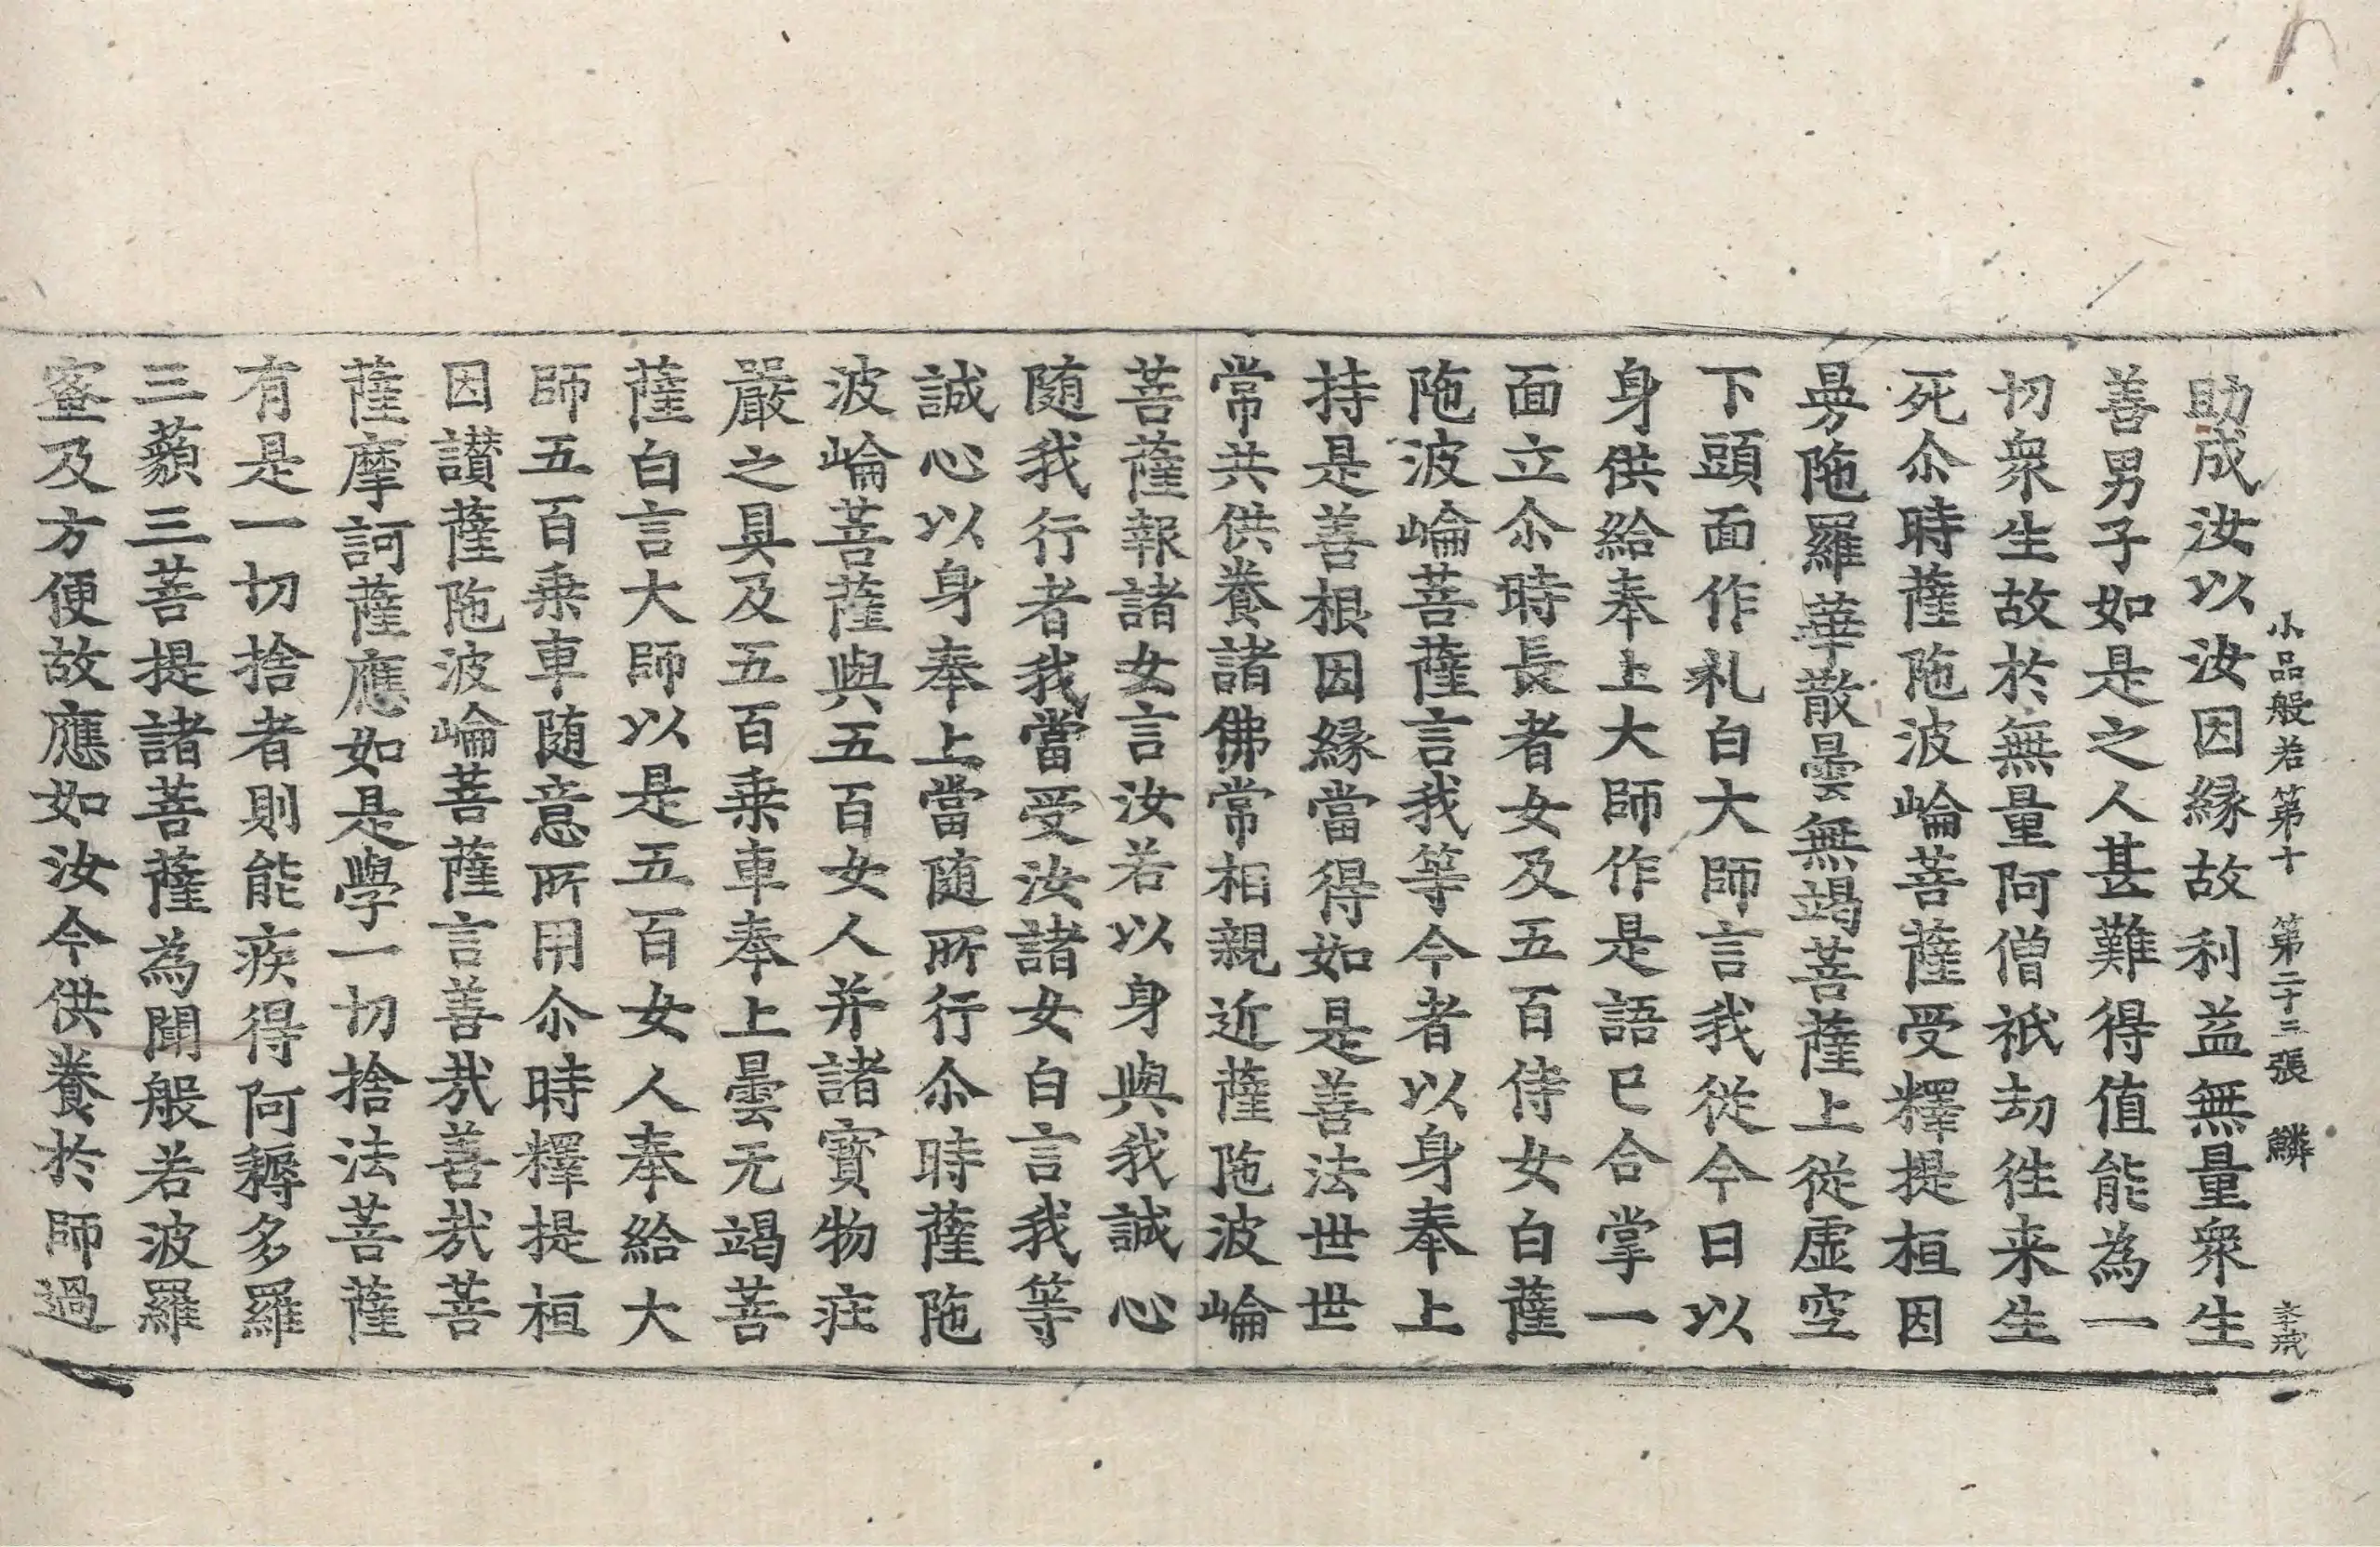 小品般若第十 第二十三張 鱗
助成汝以汝因緣故利益無量衆生
善男子如是之人甚難得值能為一
切衆生故於無量阿僧祇劫徃来生
死尒時薩陁波崘菩薩受釋提桓因
曼陁羅華散曇無竭菩薩上從虛空
下頭面作礼白大師言我從今日以
身供給奉上大師作是語已合掌一
面立尒時長者女及五百侍女白薩
陁波崘菩薩言我等今者以身奉上
持是善根因緣當得如是善法世世
常共供養諸佛常相親近薩陁波崘
菩薩報諸女言汝若以身與我誠心
随我行者我當受汝諸女白言我等
誠心以身奉上當随所行尒時薩陁
波崘菩薩與五百女人并諸寳物莊
嚴之具及五百乗車奉上曇无竭菩
薩白言大師以是五百女人奉給大
師五百乗車随意所用尒時釋提桓
因讃薩陁波崘菩薩言善㢤善㢤菩
薩摩訶薩應如是學一切捨法菩薩
有是一切捨者則能疾得阿耨多羅
三藐三菩提諸菩薩為聞般若波羅
蜜及方便故應如汝今供養於師過